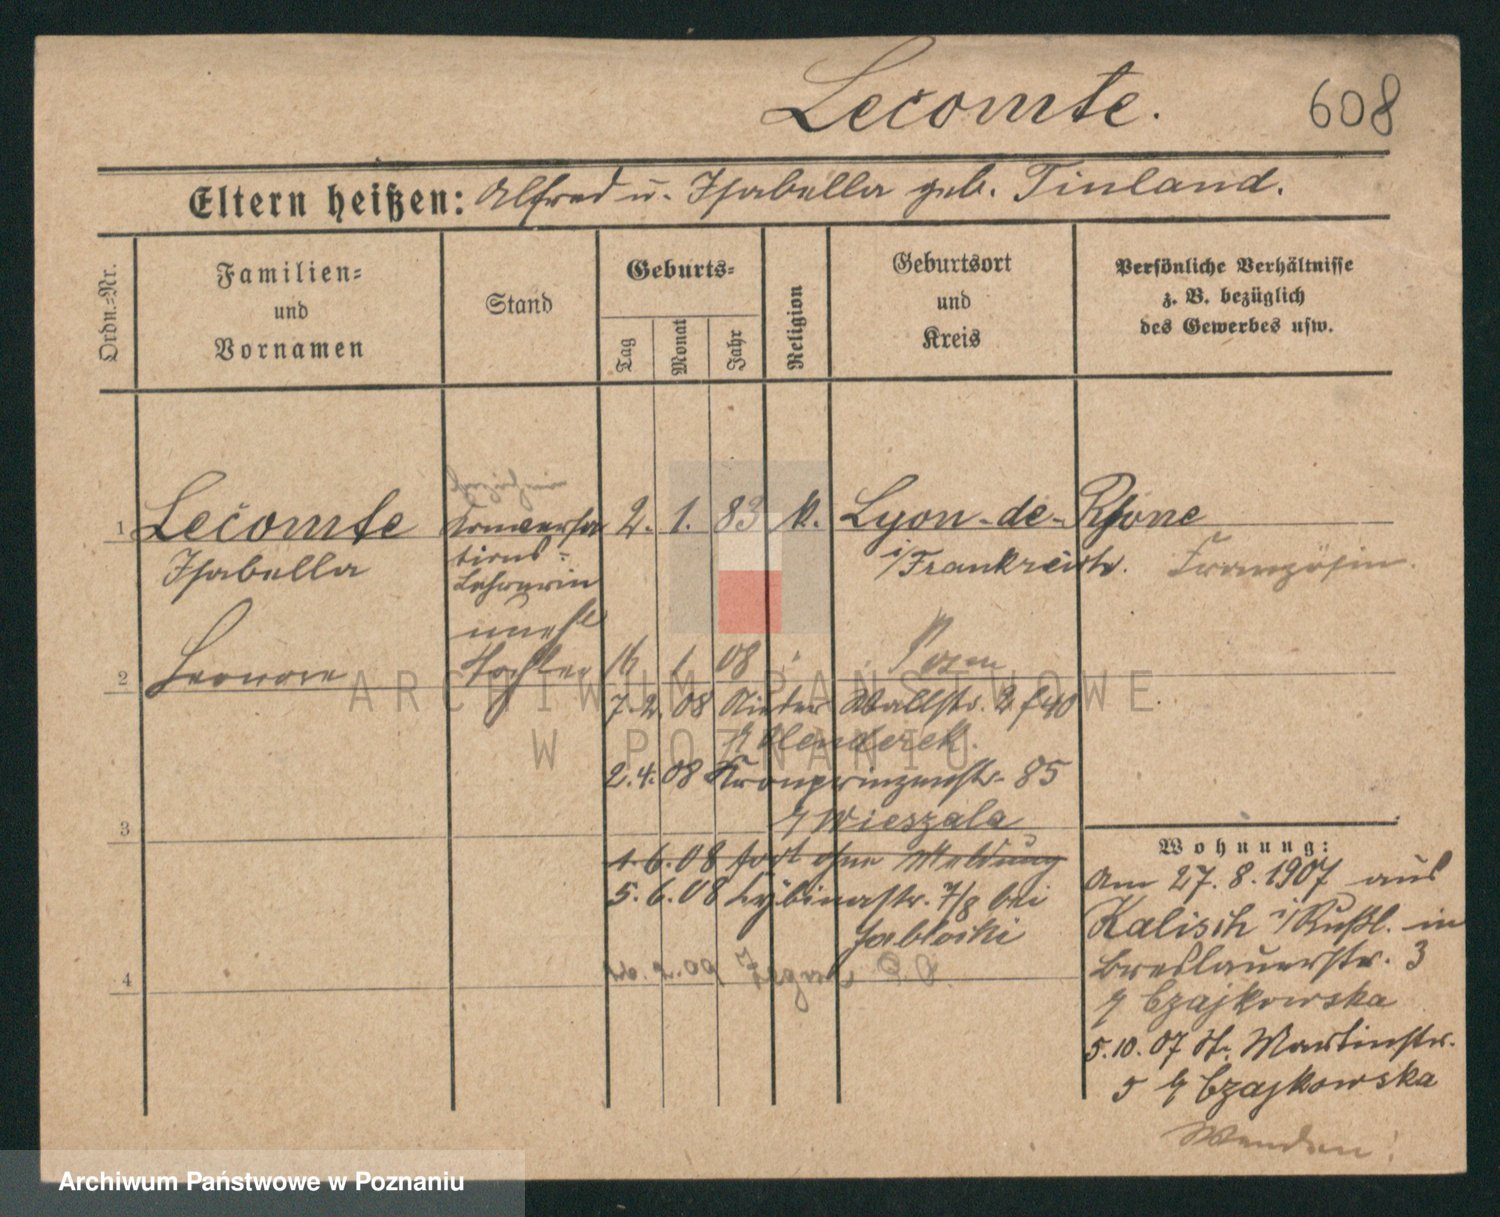 Lecomte.
608
Eltern heißen: Alfred u. Isabella geb. Tinland.
Ordn.-Nr.
Familien-
und
Vornamen
Stand
Geburts-
Tag
Monat
Jahr
Religion
Geburtsort
und
Kreis
Persönliche Verhältnisse
z. B. bezüglich
des Gewerbes usw.
Erzieherin
1 Lecomte Konversa 2. 1. 83 k. Lyon-de-Rhône
Isabella tions-
Lehrerin
i/Frankreich. Französin.
unehl
2 Leonore Tochter 16 1 08 " Posen
7. 2. 08 Nieder Wallstr. 2
b/ Olenderek.
2. 4. 08 Kronprinzenstr. 85
b/ Wieszala
3
1. 6. 08 fort ohne Meldung
5. 6. 08 Cybinastr. 7/8 bei
Jabłoński
4
Wohnung:
Am 27. 8. 1907 aus
Kalisch i/Rußl. in
Breslauerstr. 3
b/ Czajkowska
5. 10. 07 St. Martinstr.
5 b/ Czajkowska
Wenden!
ARCHIWUM PAŃSTWOWE
W POZNANIU
Archiwum Państwowe w Poznaniu